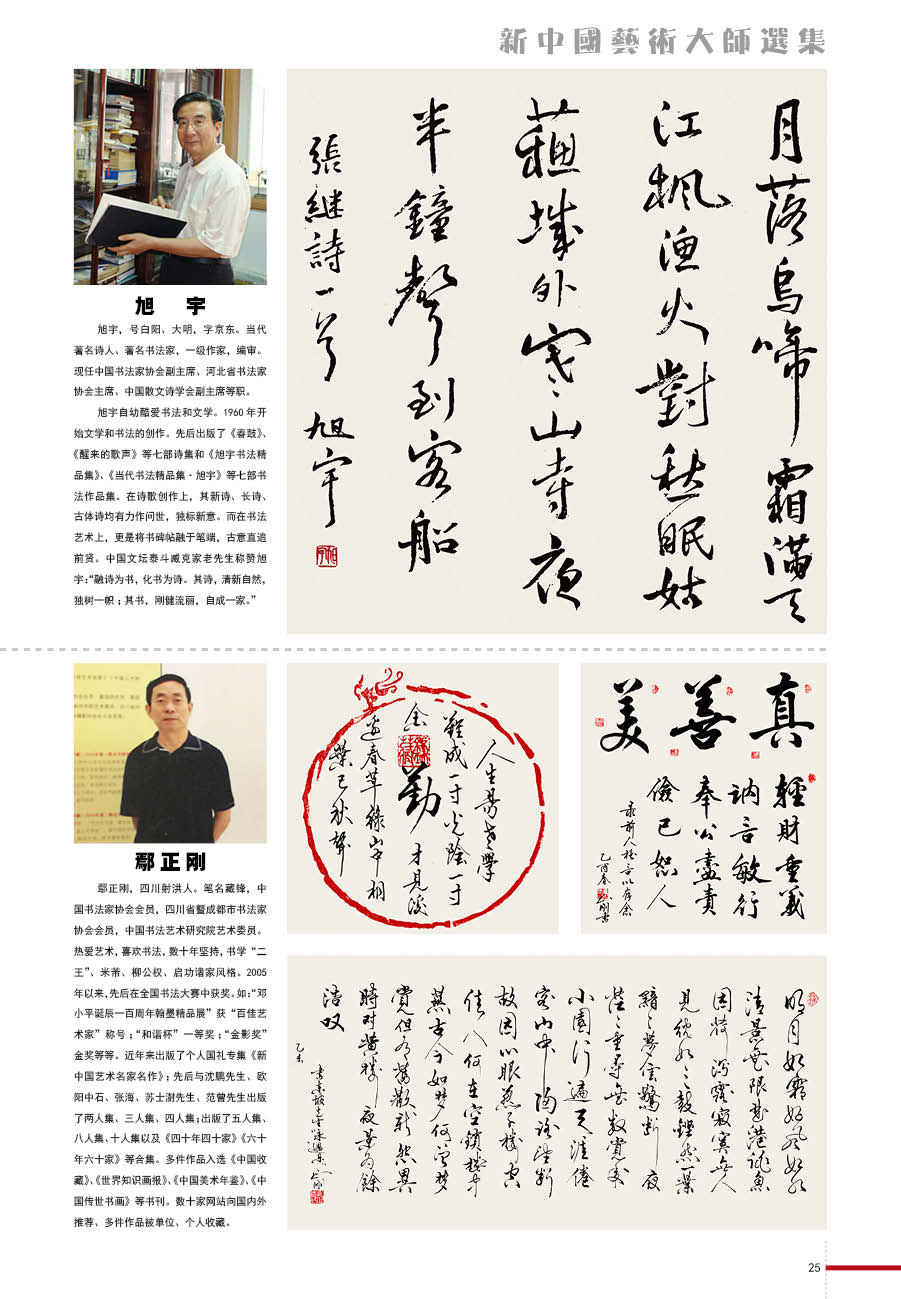 新中國藝術大師選集
旭 宇
旭宇，号白阳、大明，字京东。当代
著名诗人、著名书法家，一级作家，编审。
现任中国书法家协会副主席、河北省书法家
协会主席、中国散文诗学会副主席等职。
旭宇自幼酷爱书法和文学。1960年开
始文学和书法的创作。先后出版了《春鼓》、
《醒来的歌声》等七部诗集和《旭宇书法精
品集》、《当代书法精品集·旭宇》等七部书
法作品集。在诗歌创作上，其新诗、长诗、
古体诗均有力作问世，独标新意。而在书法
艺术上，更是将书碑帖融于笔端，古意直追
前贤。中国文坛泰斗臧克家老先生称赞旭
宇：“融诗为书，化书为诗。其诗，清新自然，
独树一帜；其书，刚健流丽，自成一家。”
月落烏啼霜满天
江楓漁火對愁眠姑
蘓城外寒山寺夜
半鐘聲到客船
張继詩一首 旭宇
鄢正刚
鄢正刚，四川射洪人。笔名藏锋，中
国书法家协会会员，四川省暨成都市书法家
协会会员，中国书法艺术研究院艺术委员。
热爱艺术，喜欢书法，数十年坚持，书学“二
王”、米芾、柳公权、启功诸家风格。2005
年以来，先后在全国书法大赛中获奖。如：“邓
小平诞辰一百周年翰墨精品展”获“百佳艺
术家”称号；“和谐杯”一等奖；“金影奖”
金奖等等。近年来出版了个人国礼专集《新
中国艺术名家名作》；先后与沈鹏先生、欧
阳中石、张海、苏士澍先生、范曾先生出版
了两人集、三人集、四人集；出版了五人集、
八人集、十人集以及《四十年四十家》《六十
年六十家》等合集。多件作品入选《中国收
藏》、《世界知识画报》、《中国美术年鉴》、《中
国传世书画》等书刊。数十家网站向国内外
推荐、多件作品被单位、个人收藏。
人生易老學
難成一寸光陰一寸
金
勤
才見後
邊春草緑岸桐
葉已秋聲
真善美
輕財重義
訥言敏行
奉公盡責
儉己恕人
录前人
明月如霜好風如水
清景無限曲港跳魚
圆荷瀉露寂寞無人
見紞如三鼓鏗然一葉
黯黯夢雲驚断夜
茫茫重尋無處覓来
小園行遍天涯倦
客山中歸路望断
故園心眼燕子樓空
佳人何在空鎖樓中
燕古今如夢何曾夢
覺但有舊歡新怨異
時对黄樓夜景為余
浩叹
25